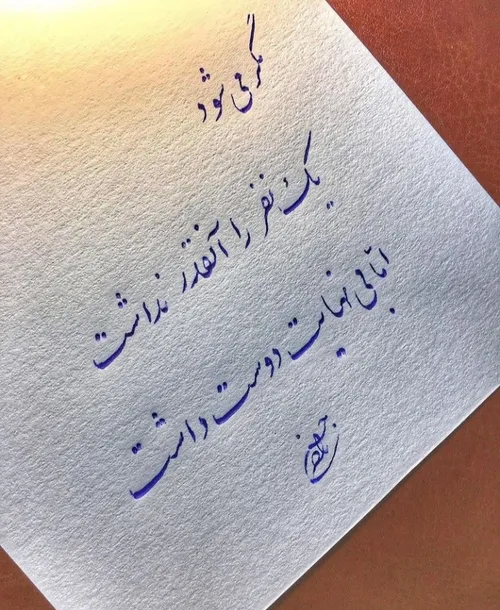 مگر می شود
یک نفر را آنقدر نداشت
اما بی نهایت دوست داشت